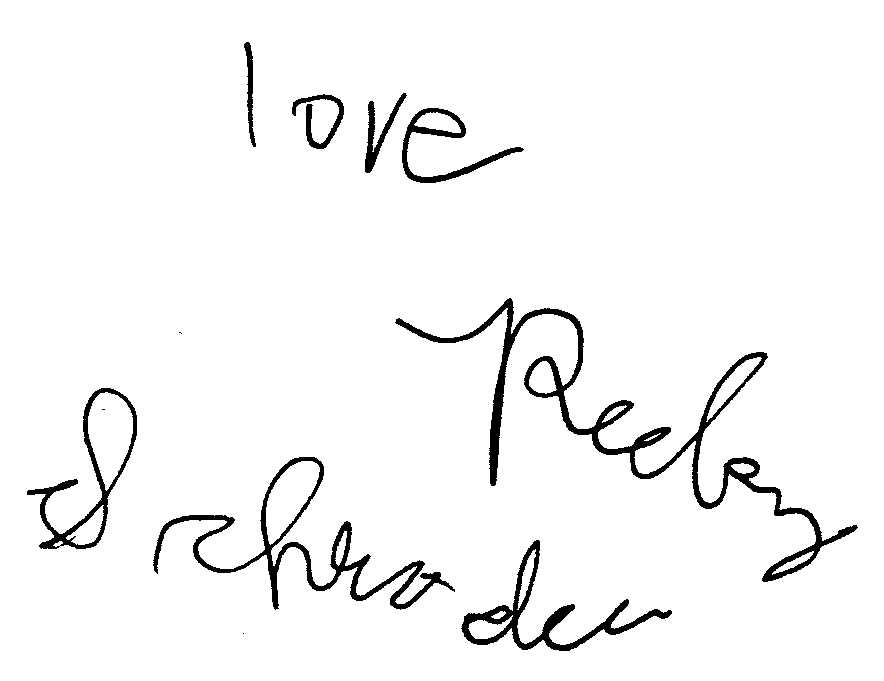 love
Ricky
Schroder